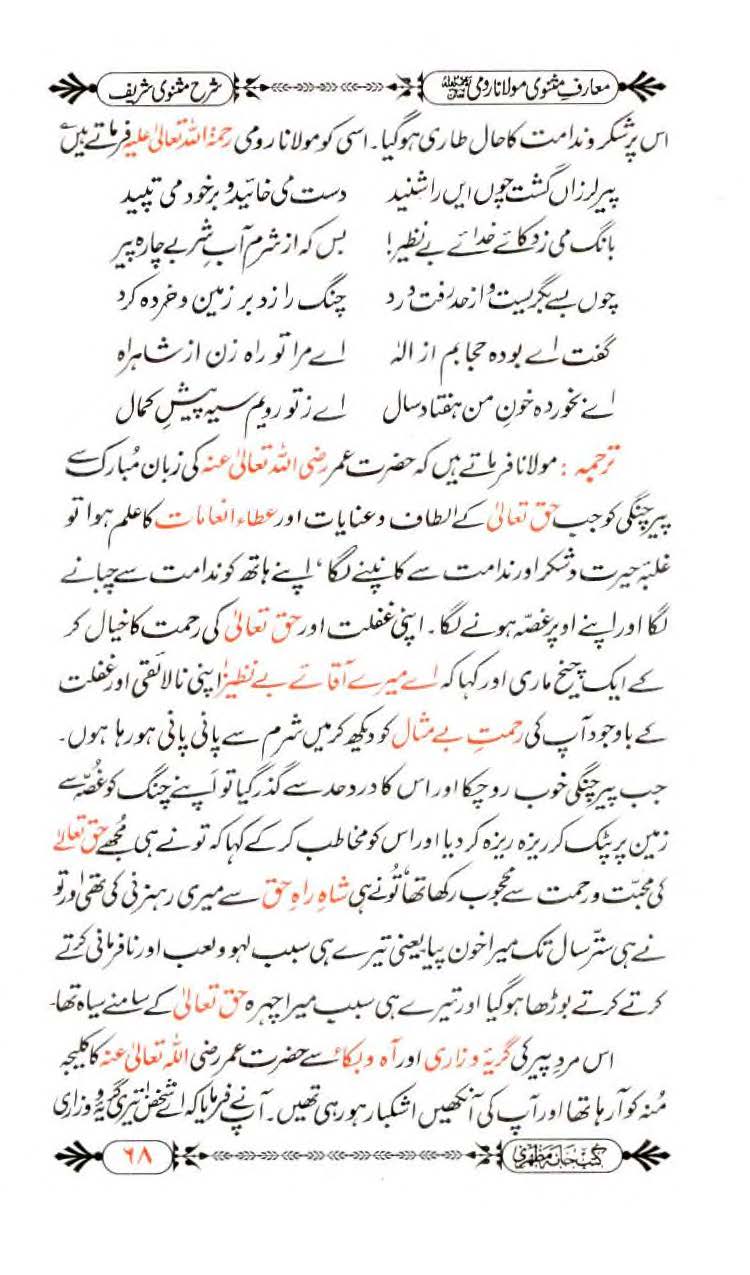 معارفِ مثنوی مولانا رومی رحمۃاللہ تعالیٰ علیہ
شرح مثنوی شریف
اس پر شکر و ندامت کا حال طاری ہوگیا۔ اسی کو مولانا رومی رحمۃ اللہ تعالیٰ علیہ فرماتے ہیں ؎
پیر لرزاں گشت چوں ایں را شنید    دست می خائید و بر خود می تپید
بانگ می زد کائے خدائے بے نظیر!    بس کہ از شرم آب شد بے چارہ پیر
چوں بسے بگریست و از حد رفت درد    چنگ را زد بر زمین و خردہ کرد
گفت اے بودہ حجابم از الٰہ    اے مرا تو راہ زن از شاہراہ
اے بخوردہ خونِ من ہفتاد سال    اے ز تو رویم سیہ پیشِ کمال
ترجمہ: مولانا فرماتے ہیں کہ حضرت عمر رضی اللہ تعالیٰ عنہ کی زبان مُبارک سے
پیر چنگی کو جب حق تعالیٰ کے الطاف و عنایات اور عطاء انعامات کا علم ہوا تو
غلبۂ حیرت و شکر اور ندامت سے کانپنے لگا، اپنے ہاتھ کو ندامت سے چبانے
لگا اور اپنے اوپر غصّہ ہونے لگا۔ اپنی غفلت اور حق تعالیٰ کی رحمت کا خیال کر
کے ایک چیخ ماری اور کہا کہ اے میرے آقائے بے نظیر! اپنی نالائقی اور غفلت
کے باوجود آپ کی رحمتِ بے مثال کو دیکھ کر میں شرم سے پانی پانی ہو رہا ہوں۔
جب پیر چنگی خوب رو چکا اور اس کا درد حد سے گذر گیا تو اَپنے چنگ کو غُصّہ سے
زمین پر پٹک کر ریزہ ریزہ کر دیا اور اس کو مخاطب کر کے کہا کہ تو نے ہی مُجھے حق تعالےٰ
کی محبّت و رحمت سے محجوب رکھا تھا تُو نے ہی شاہِ راہِ حق سے میری رہزنی کی تھی اور تو
نے ہی ستّر سال تک میرا خون پیا یعنی تیرے ہی سبب لہو و لعب اور نافرمانی کرتے
کرتے کرتے بوڑھا ہوگیا اور تیرے ہی سبب میرا چہرہ حق تعالیٰ کے سامنے سیاہ تھا۔
اس مردِ پیر کی گریۂ و زاری اور آہ و بکاء سے حضرت عمر رضی اللہ تعالیٰ عنہ کا کلیجہ
مُنہ کو آ رہا تھا اور آپ کی آنکھیں اشکبار ہو رہی تھیں۔ آپ نے فرمایا کہ اے شخص! تیری گریۂ و زاری
کتب خانہ مظہری
۶۸